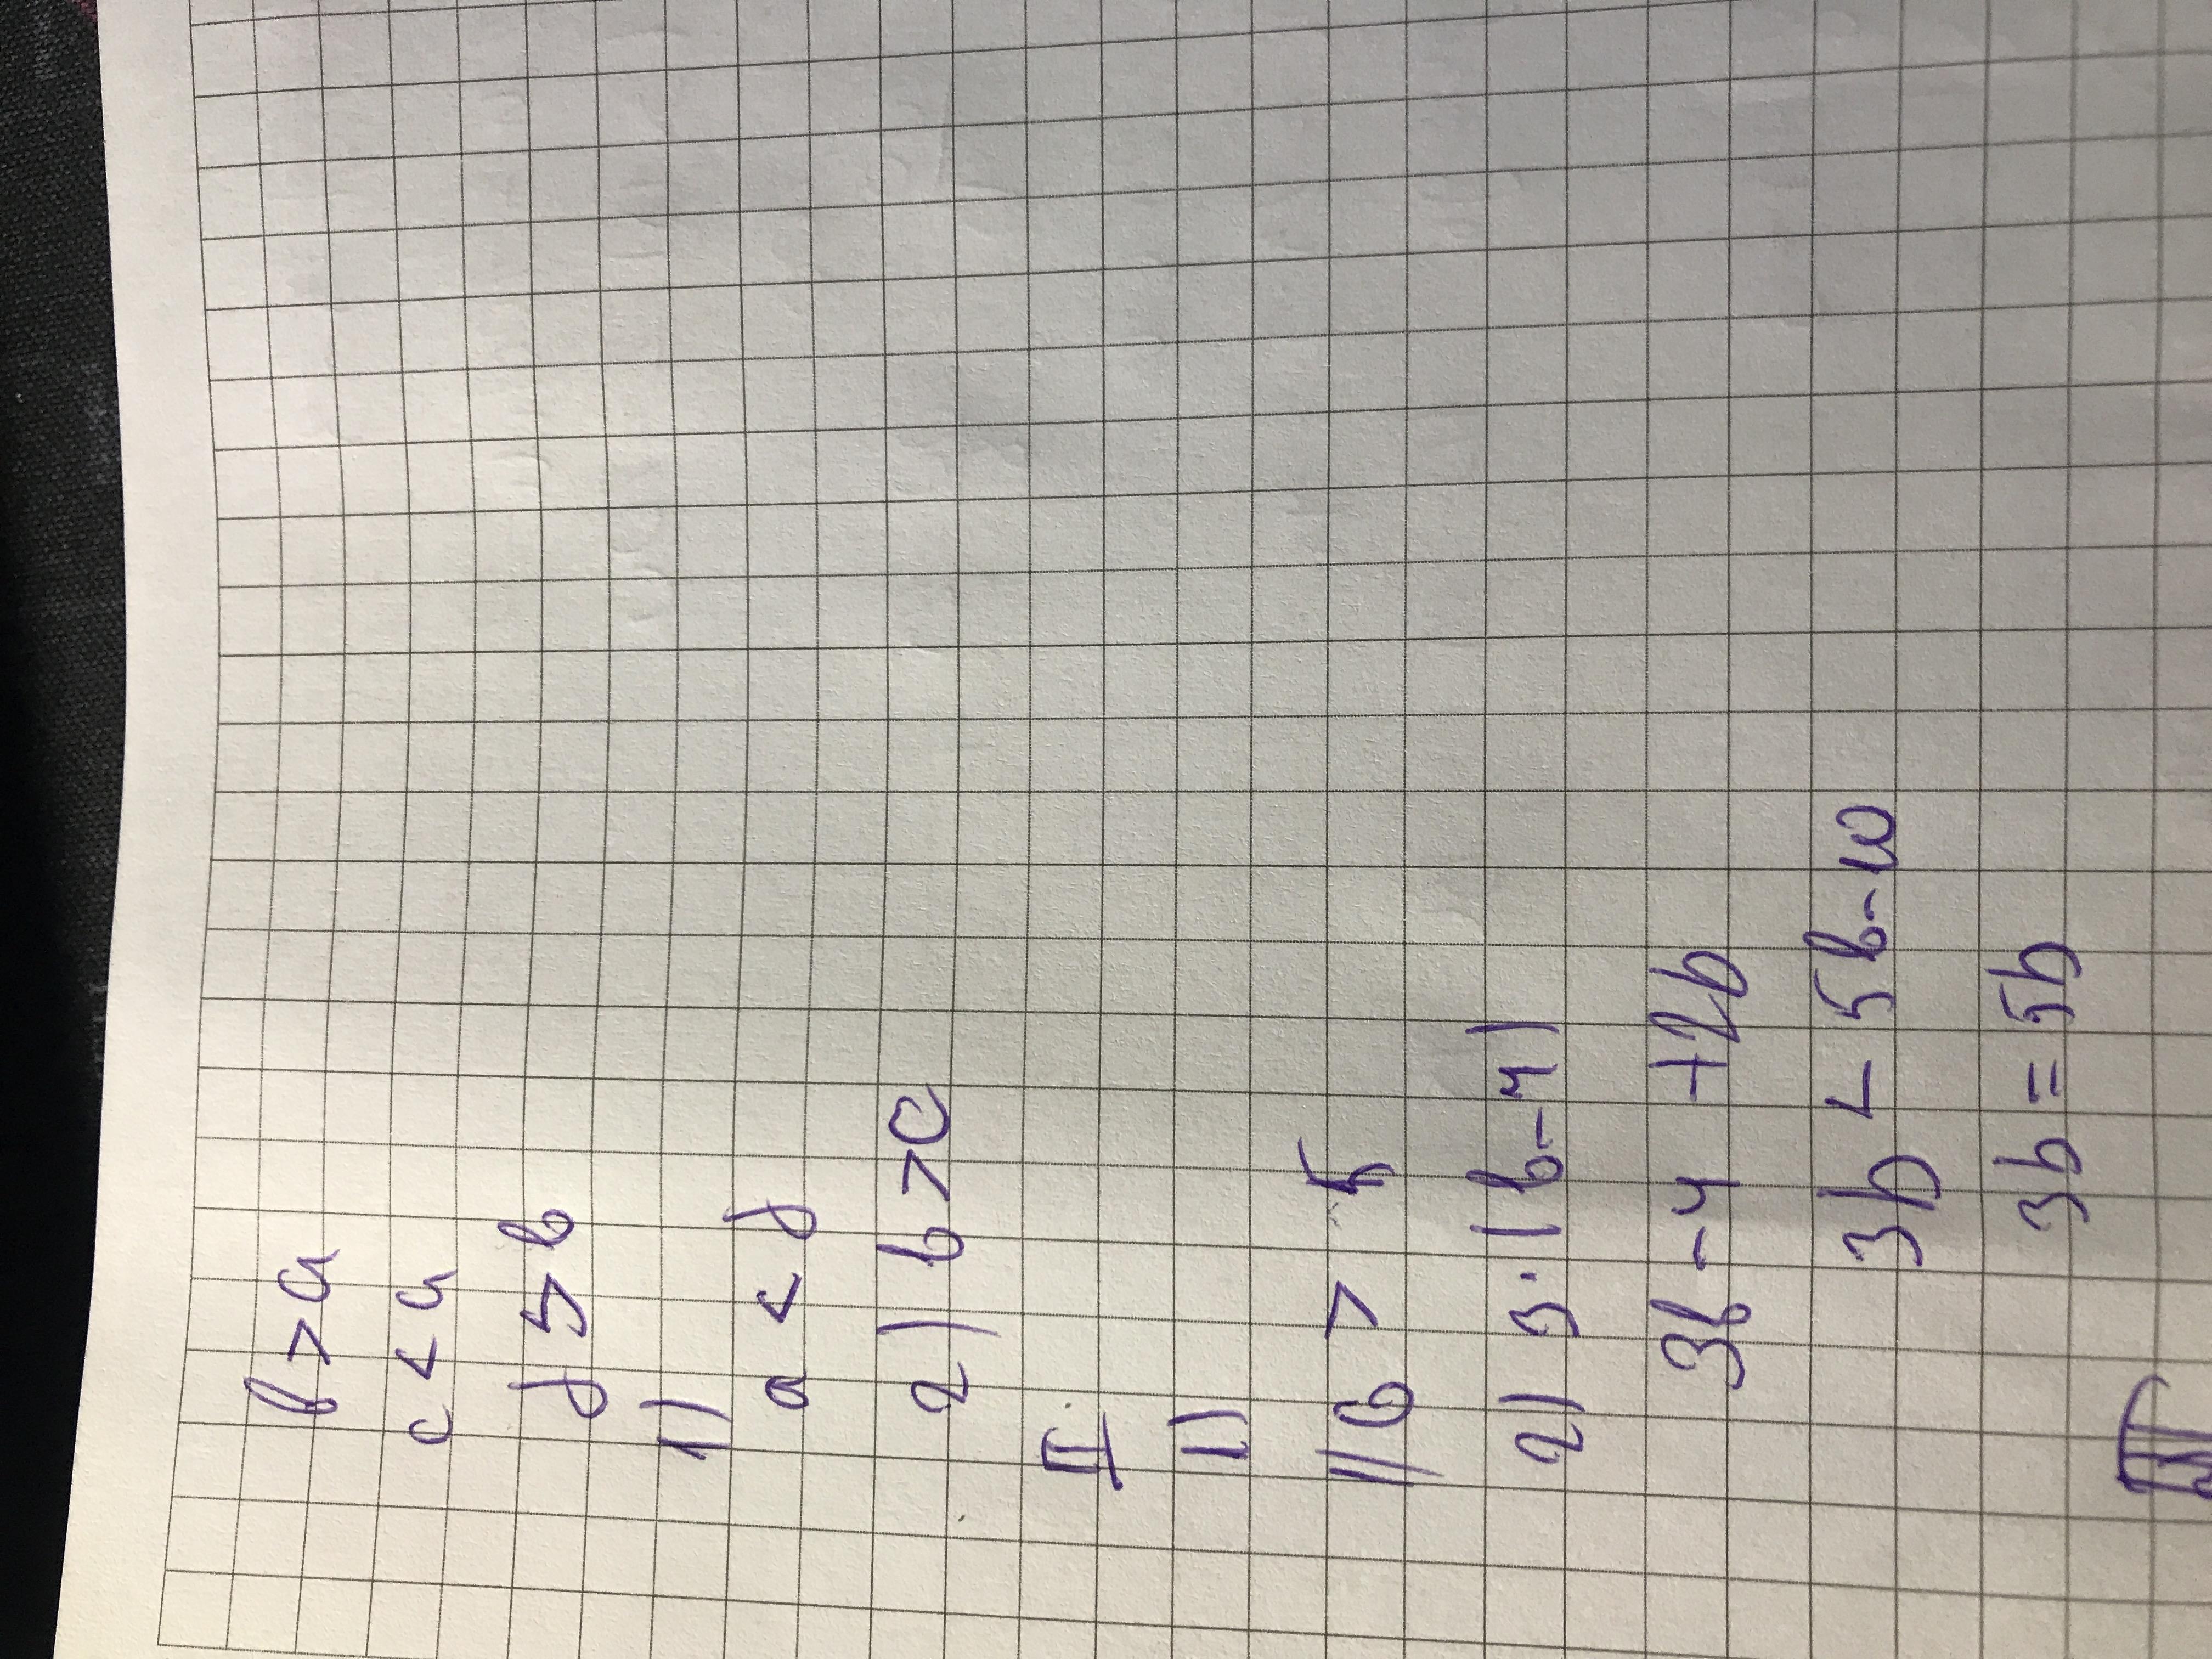 b > a
c < a
d > b
1)
a < d
2) b > c
II
1)
1) 6 > 5
2) 3 · (b - 4)
3b - 4 + 2b
3b < 5b - 10
3b = 5b